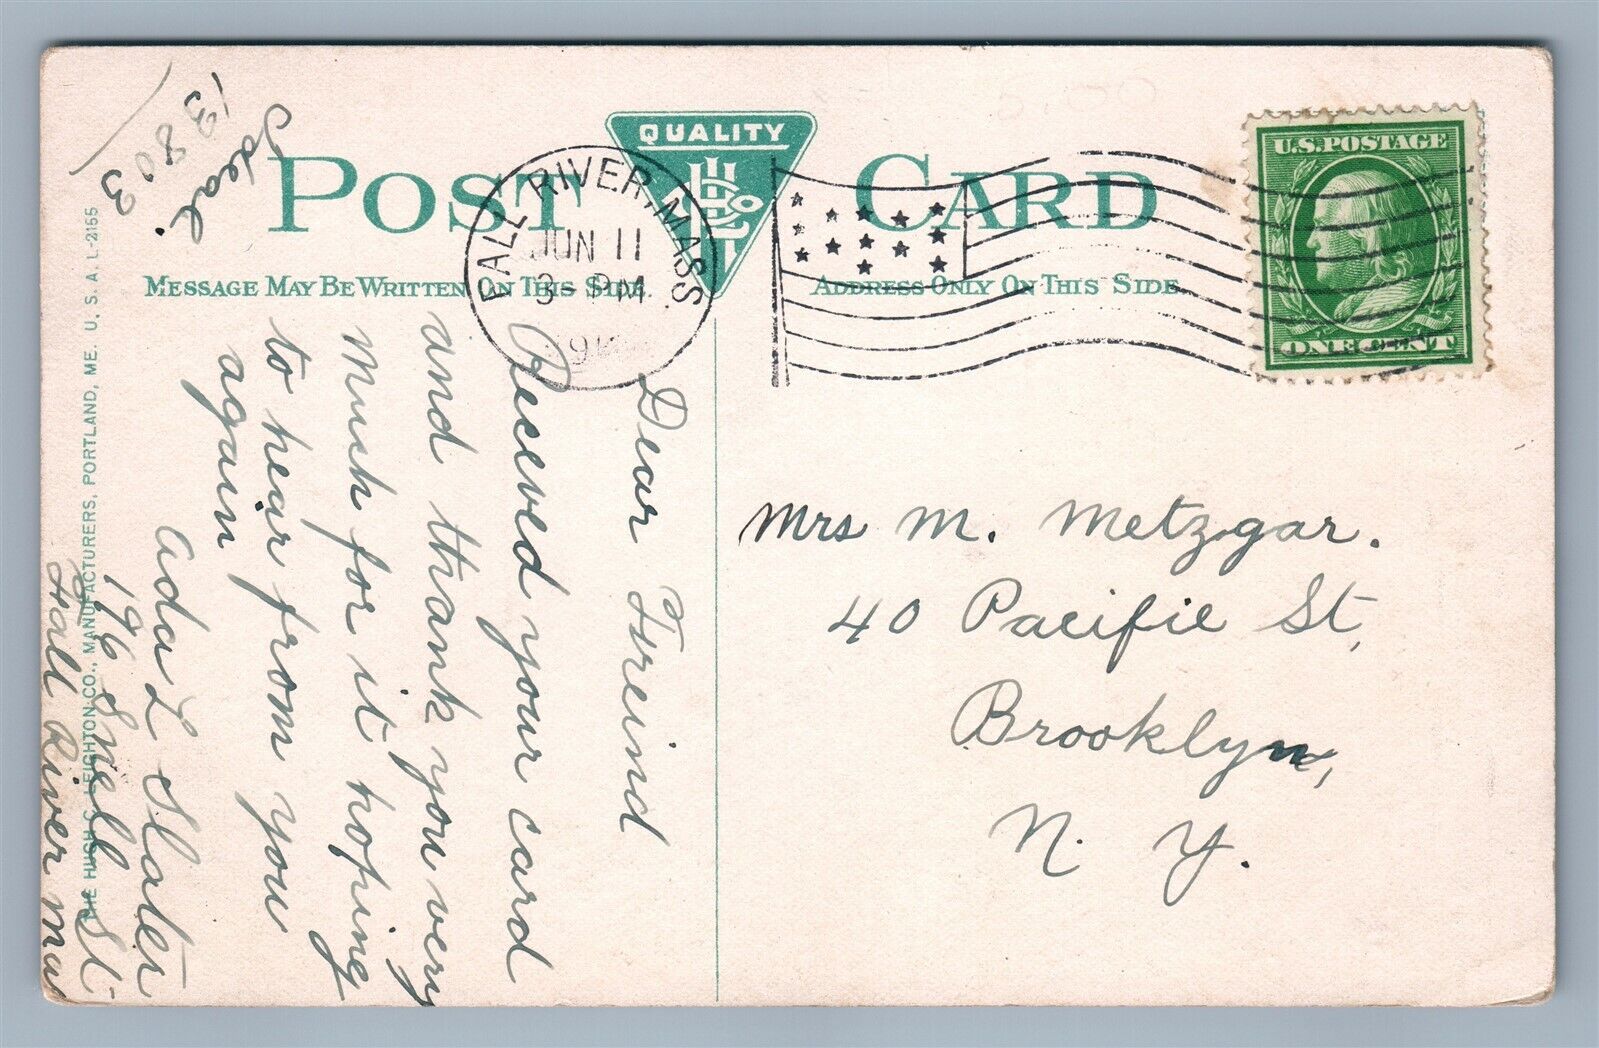 Ideal.
13803
POST CARD
QUALITY
HCL Co
MESSAGE MAY BE WRITTEN ON THIS SIDE.
ADDRESS ONLY ON THIS SIDE.
FALL RIVER, MASS.
JUN 11
3 PM
U.S. POSTAGE
ONE CENT
Dear Freind
Received your card
and thank you very
much for it hoping
to hear from you
again
Ada L Slater
196 Snell St-
Fall River mas
THE HUGH C. LEIGHTON CO., MANUFACTURERS, PORTLAND, ME. U. S. A. L-2155
Mrs M. Metzgar.
40 Pacific St,
Brooklyn,
N. Y.